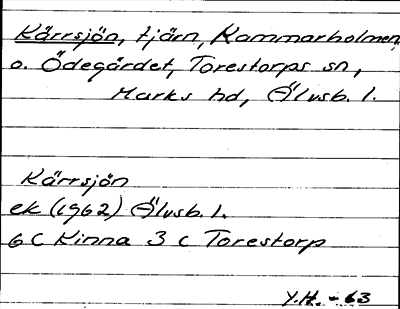 Kärrsjön, tjärn, Kammarholmen,
o. Ödegärdet, Torestorps sn,
Marks hd, Älvsb. l.
Kärrsjön
ek (1962) Älvsb. l.
6 C Kinna 3 c Torestorp
Y.H. - 63